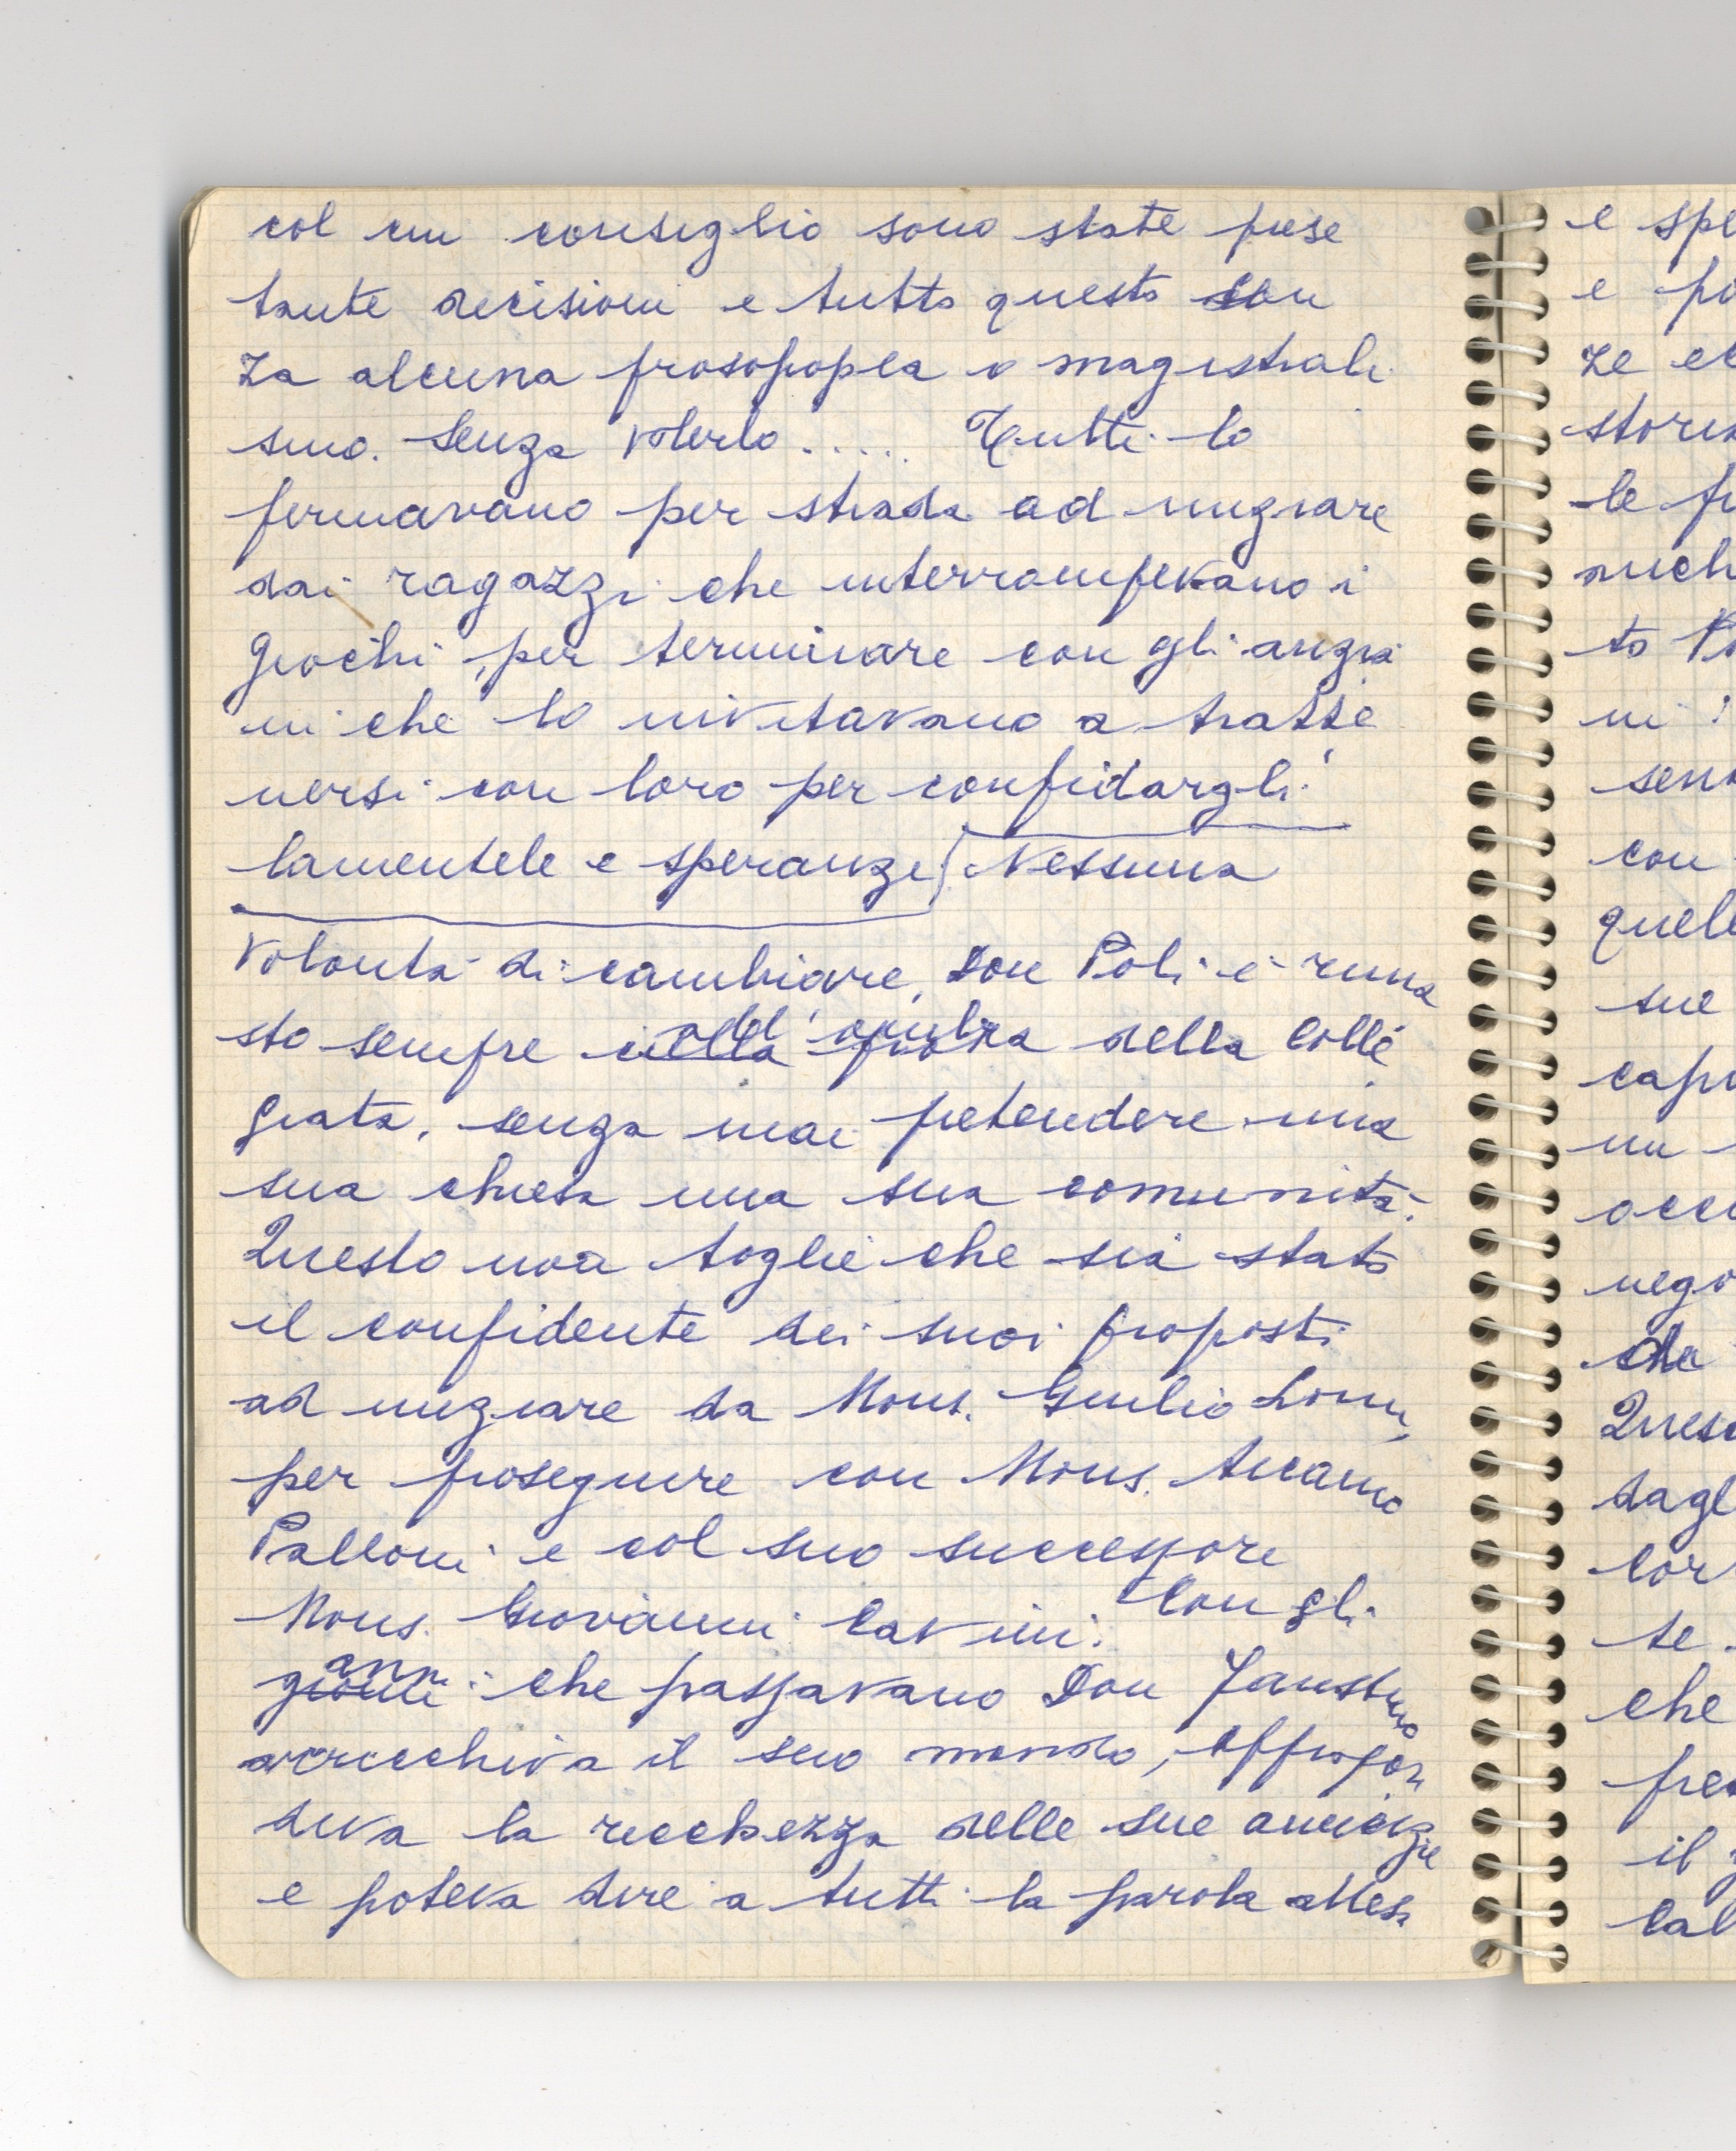 col cui consiglio sono state prese
tante decisioni e tutto questo sen
za alcuna prosopopea o magistrali
smo. Senza volerlo..... Tutti lo
fermavano per strada ad iniziare
dai ragazzi che interrompevano i
giochi, per terminare con gli anzia
ni che lo invitavano a tratte
nersi con loro per confidargli
lamentele e speranze Nessuna
volontà di cambiare, Don Poli è rima
sto sempre all'ombra della Colle
giata, senza mai pretendere una
sua chiesa una sua comunità.
Questo non toglie che sia stato
il confidente dei suoi proposti
ad iniziare da Mons. Giulio
per proseguire con Mons. Ascanio
Palloni e col suo successore
Mons. Giovanni Cavini. Con gli
anni che passavano Don Faustino
arricchiva il suo mondo, approfon
diva la ricchezza delle sue amicizie
e poteva dire a tutti la parola attesa
e
e
ze
le
to
ni
con
sue
un
Ques
te.
che
il